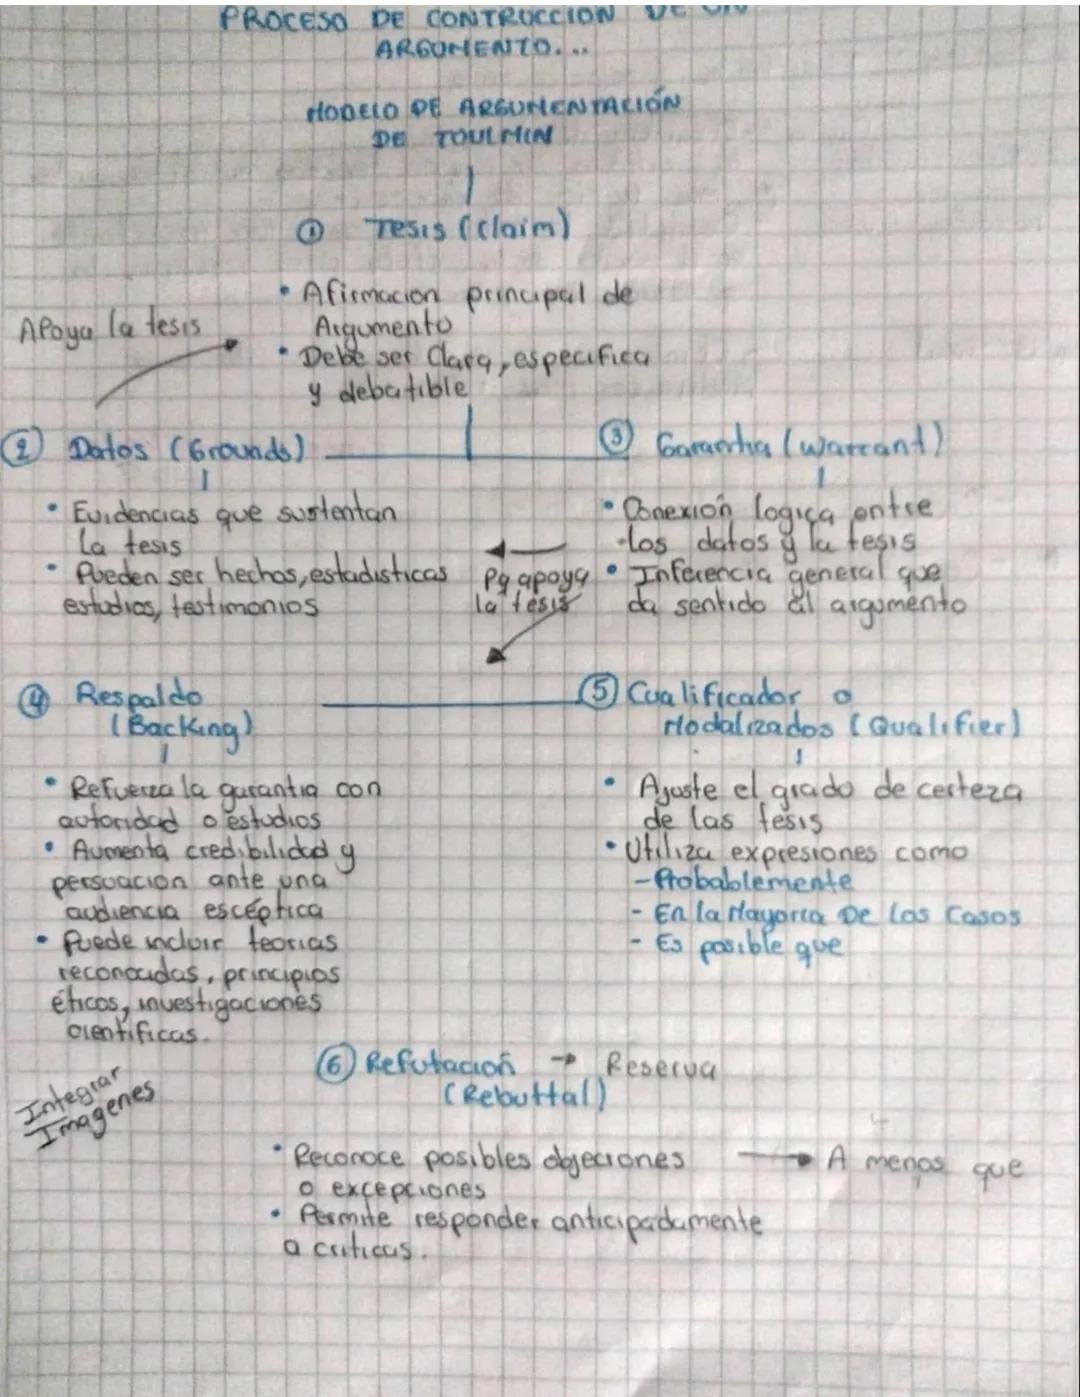 PROCESO DE CONTRUCCION DE UN
ARGUMENTO...
MODELO DE ARGUMENTACIÓN
DE TOULMIN
① Tesis (Claim)
• Afirmacion principal de
Argumento
• Debe ser Clara, especifica
y debatible
Apoya la tesis
② Datos (Grounds)
• Evidencias que sustentan
la tesis
• Pueden ser hechos, estadisticas
estudios, testimonios
③ Garantia (Warrant)
• Conexión logica entre
los datos y la tesis
• Inferencia general que
da sentido al argumento
Pq apoya
la tesis
④ Respaldo
(Backing)
• Refuerza la garantia con
autoridad o estudios
• Aumenta credibilidad y
persuacion ante una
audiencia escéptica
• Puede incluir teorias
reconocidas, principios
éticos, investigaciones
cientificas.
⑤ Cualificador o
Modalizados (Qualifier)
• Ajuste el grado de certeza
de las tesis
• Utiliza expresiones como
- Probablemente
- En la Mayoria De los Casos
- Es posible que
Integrar
Imagenes
⑥ Refutación → Reserva
(Rebuttal)
• Reconoce posibles objeciones → A menos que
o excepciones
• Permite responder anticipadamente
a criticas.